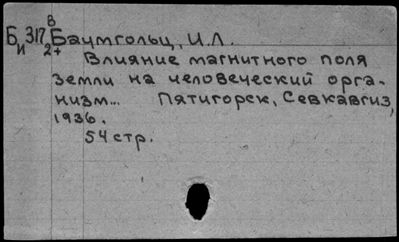 Б 317 В
и 2+
Баумгольц, И.Л.
Влияние магнитного поля
земли на человеческий орга-
низм... Пятигорск, Севкавгиз,
1936.
54 стр.